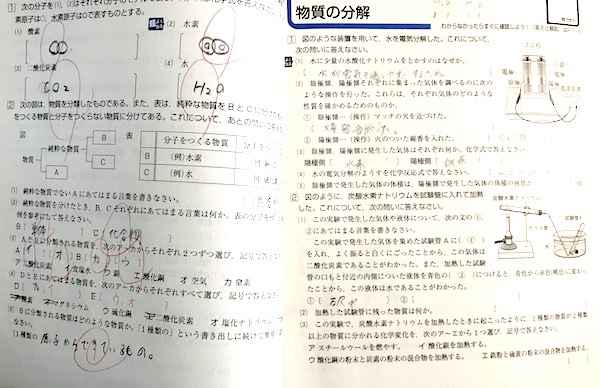 ① 次の分子を
(1) 酸素
(2) 水素
(3) 二酸化炭素
(4) 水
CO₂
H₂O
② 次の図は、物質を分類したものである。また、表は、純粋な物質をBとCに
をつくる物質と分子をつくらない物質に分けてある。これについて、あとの問いに答え
図
物質
純粋な物質
A
B
C
表
分子をつくる物質
B (例)水素
C (例)水
(1) 純粋な物質でないAにあてはまる言葉を書きなさい。
(2) 純粋な物質を分けたとき、B、Cそれぞれにあてはまる言葉は何か。
例を参考にして答えなさい。
B( 単体 ) C( 化合物
(3) AとBに分類される物質を、次のア〜カからそれぞれ2つずつ選び、記号で答
ア 二酸化炭素 イ 食塩水 ウ 銀 エ 酸化銅 オ 空気 カ 窒素
(4) DとEにあてはまる物質を、次のア〜オからそれぞれすべて選び、記号で答えなさい。
ア 酸素 イ マグネシウム ウ 硫化銅 エ 二酸化炭素 オ 塩化ナトリウム
(5) Bに分類される物質はどのような物質か。「1種類の」という書き出しに続けて
(1種類の 原子からできているもの。
物質の分解
わからなかったらすぐに確認しよう!
① 図のような装置を用いて、水を電気分解した。これについて、
次の問いに答えなさい。
ゴム栓
電極
電極
電源装置
(1) 水に少量の水酸化ナトリウムをとかすのはなぜか。
(2) 陰極側、陽極側それぞれに集まった気体を調べるのに次の
ような操作を行った。これらは、それぞれ気体のどのような
性質を確かめるためのものか。
陰極側…(操作) マッチの火を近づけた。
陽極側…(操作) 火のついた線香を入れた。
(3) 陰極側、陽極側で発生した気体はそれぞれ何か。化学式で答えなさい。
陰極側( 水素 ) 陽極側( 酸素 )
(4) 水の電気分解のようすを化学反応式で答えなさい。
(5) 陰極側で発生した気体の体積は、陽極側で発生した気体の体積の何倍か。
② 図のように、炭酸水素ナトリウムを試験管に入れて加熱
した。これについて、次の問いに答えなさい。
炭酸水素ナトリウム
試験管A
ガラス管
水
(1) この実験で発生した気体や液体について、次の文の①、
②にあてはまる言葉を書きなさい。
この実験で発生した気体を集めた試験管Aに( ① )
を入れ、よく振ると白くにごったことから、この気体は
二酸化炭素であることがわかった。また、加熱した試験
管の口もと付近の内側についた液体を青色の( ② )につけると、青色から赤色(桃色)に変わっ
たことから、この液体は水であることがわかった。
①( 石灰水 ) ②(
(2) 加熱した試験管に残った物質は何か。
(3) この実験で、炭酸水素ナトリウムを加熱したときに起こったように、1種類の物質が2種類
以上の物質に分かれる化学変化を、次のア〜エから1つ選び、記号で答えなさい。
ア スチールウールを燃やす。 イ 酸化銀を加熱する。
ウ 酸化銅の粉末と炭素の粉末の混合物を加熱する。 エ 鉄粉と硫黄の粉末の混合物を加熱する。